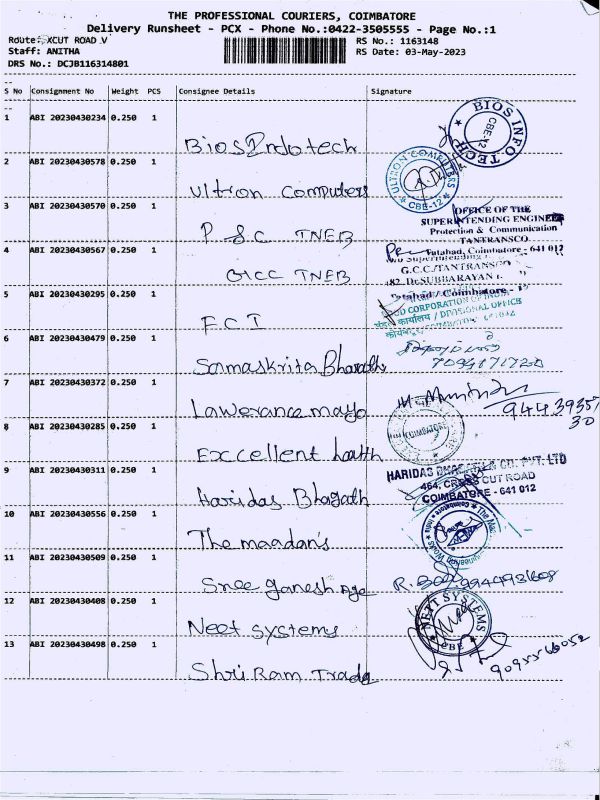 THE PROFESSIONAL COURIERS, COIMBATORE
Delivery Runsheet - PCX - Phone No.:0422-3505555 - Page No.:1
Route: XCUT ROAD V RS No.: 1163148
Staff: ANITHA RS Date: 03-May-2023
DRS No.: DCJB116314801
S No Consignment No Weight PCS Consignee Details Signature
1 ABI 20230430234 0.250 1
Bios Infotech
BIOS INFO TECH CBE-12
2 ABI 20230430578 0.250 1
Ultron Computers
ULTRON COMPUTERS CBE-12
3 ABI 20230430570 0.250 1
P & C TNEB
OFFICE OF THE
SUPERINTENDING ENGINEER
Protection & Communication
TANTRANSCO
Tatabad, Coimbatore - 641 012
4 ABI 20230430567 0.250 1
GCC TNEB
G.C.C/TANTRANSCO
182, Dr.SUBBARAYAN
Tatabad / Coimbatore - 1
5 ABI 20230430295 0.250 1
FCI
FOOD CORPORATION OF INDIA
कार्यालय / DIVISIONAL OFFICE
6 ABI 20230430479 0.250 1
Samaskrita Bharathi
7 ABI 20230430372 0.250 1
Lawerance mayo
8 ABI 20230430285 0.250 1
Excellent health
COIMBATORE
9 ABI 20230430311 0.250 1
Haridas Bhagath
HARIDAS BHAGATH CO. PVT. LTD
464, CROSS CUT ROAD
COIMBATORE - 641 012
10 ABI 20230430556 0.250 1
The maadan's
11 ABI 20230430509 0.250 1
Sree ganesh Age
12 ABI 20230430408 0.250 1
Neet systems
NEET SYSTEMS CBE
13 ABI 20230430498 0.250 1
Shri Ram Trade